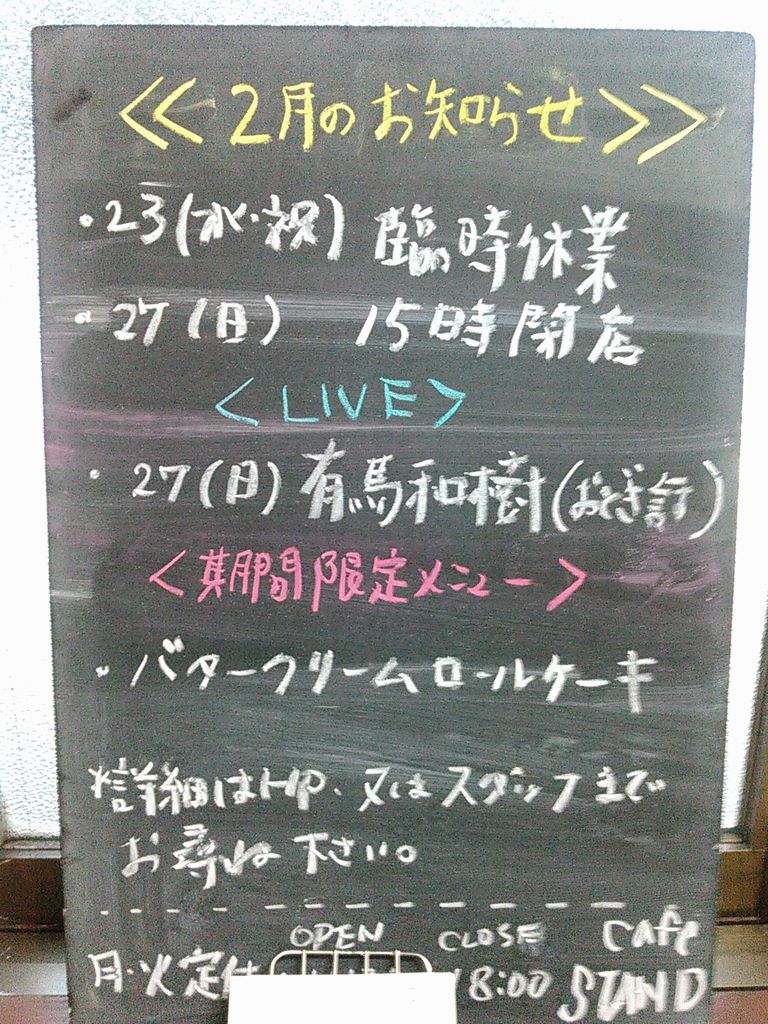 <<2月のお知らせ>>
・23(水・祝) 臨時休業
・27(日) 15時閉店
<LIVE>
・27(日)有馬和樹(おとぎ話)
<期間限定メニュー>
・バタークリームロールケーキ
詳細はHP、又はスタッフまで
お尋ね下さい。
OPEN CLOSE Cafe
月・火定休 18:00 STAND